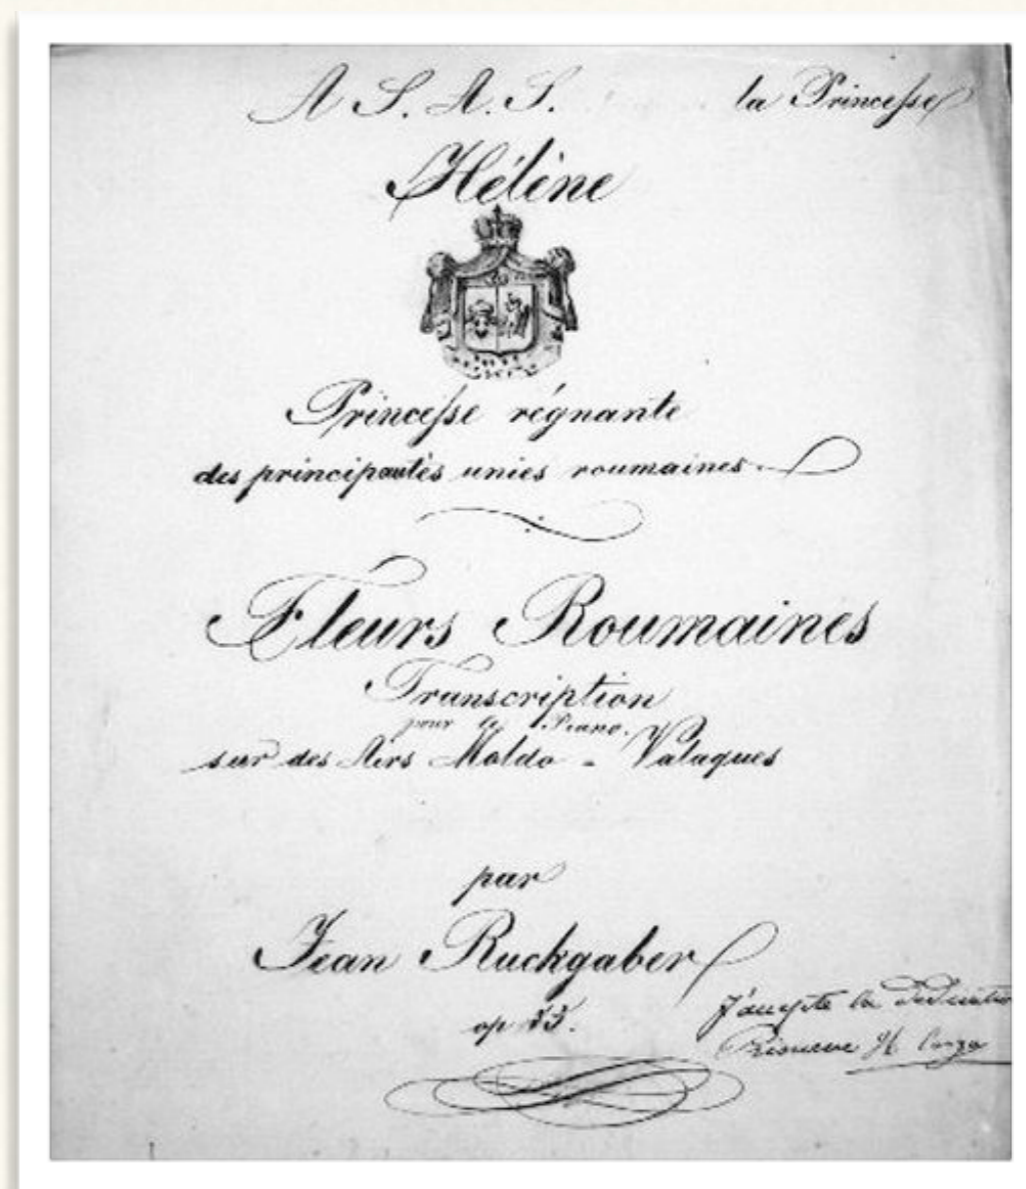 A S. A. S. la Princesse
Hélène
Princesse régnante
des principautés unies roumaines.
Fleurs Roumaines
Transcription
pour le Piano.
sur des Airs Moldo - Valaques
par
Jean Ruckgaber
op
J'accepte la
H. Couza